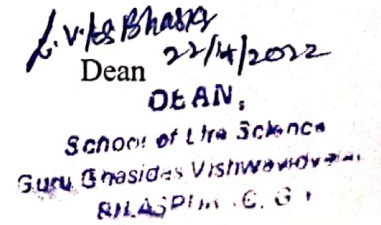 Bhaskar
Dean 22/4/2022
DEAN,
School of Life Science
Guru Ghasidas Vishwavidyalaya
BILASPUR C. G.